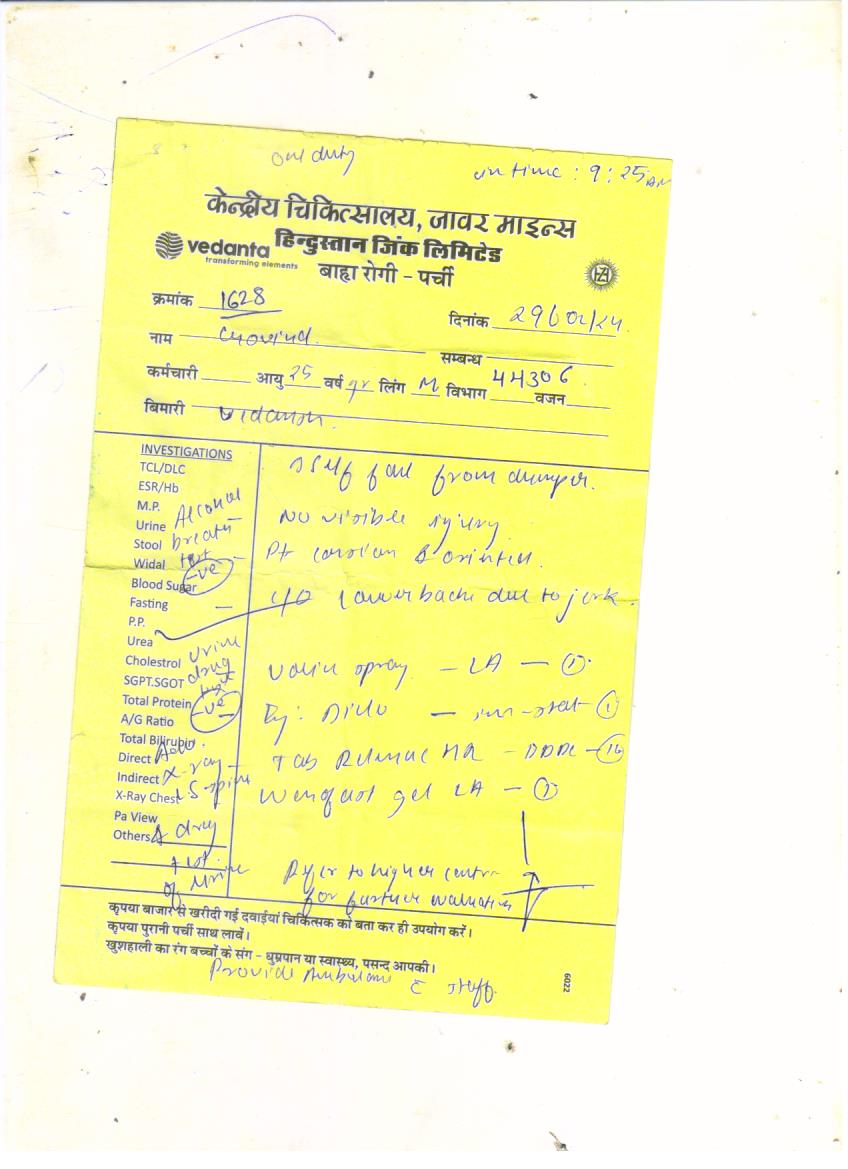 On duty
in time : 9:25 AM
केन्द्रीय चिकित्सालय, जावर माइन्स
vedanta हिन्दुस्तान जिंक लिमिटेड
transforming elements
बाह्य रोगी - पर्ची
क्रमांक 1628
दिनांक
नाम Govind.
सम्बन्ध
कर्मचारी आयु 25 वर्ष yr लिंग M विभाग 44306 वजन
बिमारी
INVESTIGATIONS
TCL/DLC
ESR/Hb
M.P.
Urine
Stool
Widal
Blood Sugar
Fasting
P.P.
Urea
Cholestrol
SGPT.SGOT
Total Protein
A/G Ratio
Total Bilirubin
Direct
Indirect
X-Ray Chest
Pa View
Others
Alcohol
breath
test
-ve
urine
drug
test
-ve
Adv.
X-ray
LS spine
drug
test
of urine
self fall from dumper.
No visible injury.
Pt concian & orinted.
c/o Lower bache due to jerk.
Volin spray - LA - 1
Inj: Diclo - im - stat - 1
Tab MR - - 10
gel LA - 1
Refer to higher centre
for further evaluation
कृपया बाजार से खरीदी गई दवाईयां चिकित्सक को बता कर ही उपयोग करें।
कृपया पुरानी पर्ची साथ लावें।
खुशहाली का रंग बच्चों के संग - धुम्रपान या स्वास्थ्य, पसन्द आपकी।
6022
Provide Ambulanc c staff